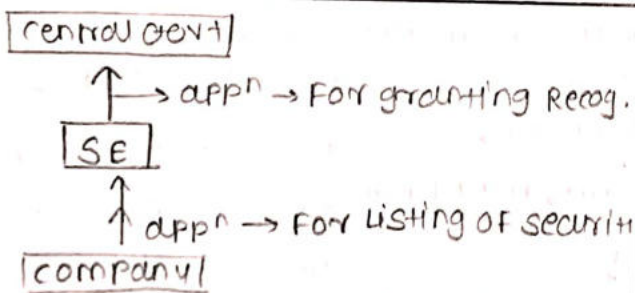 central Govt
appⁿ → For granting Recog.
SE
appⁿ → For Listing of securiti
company